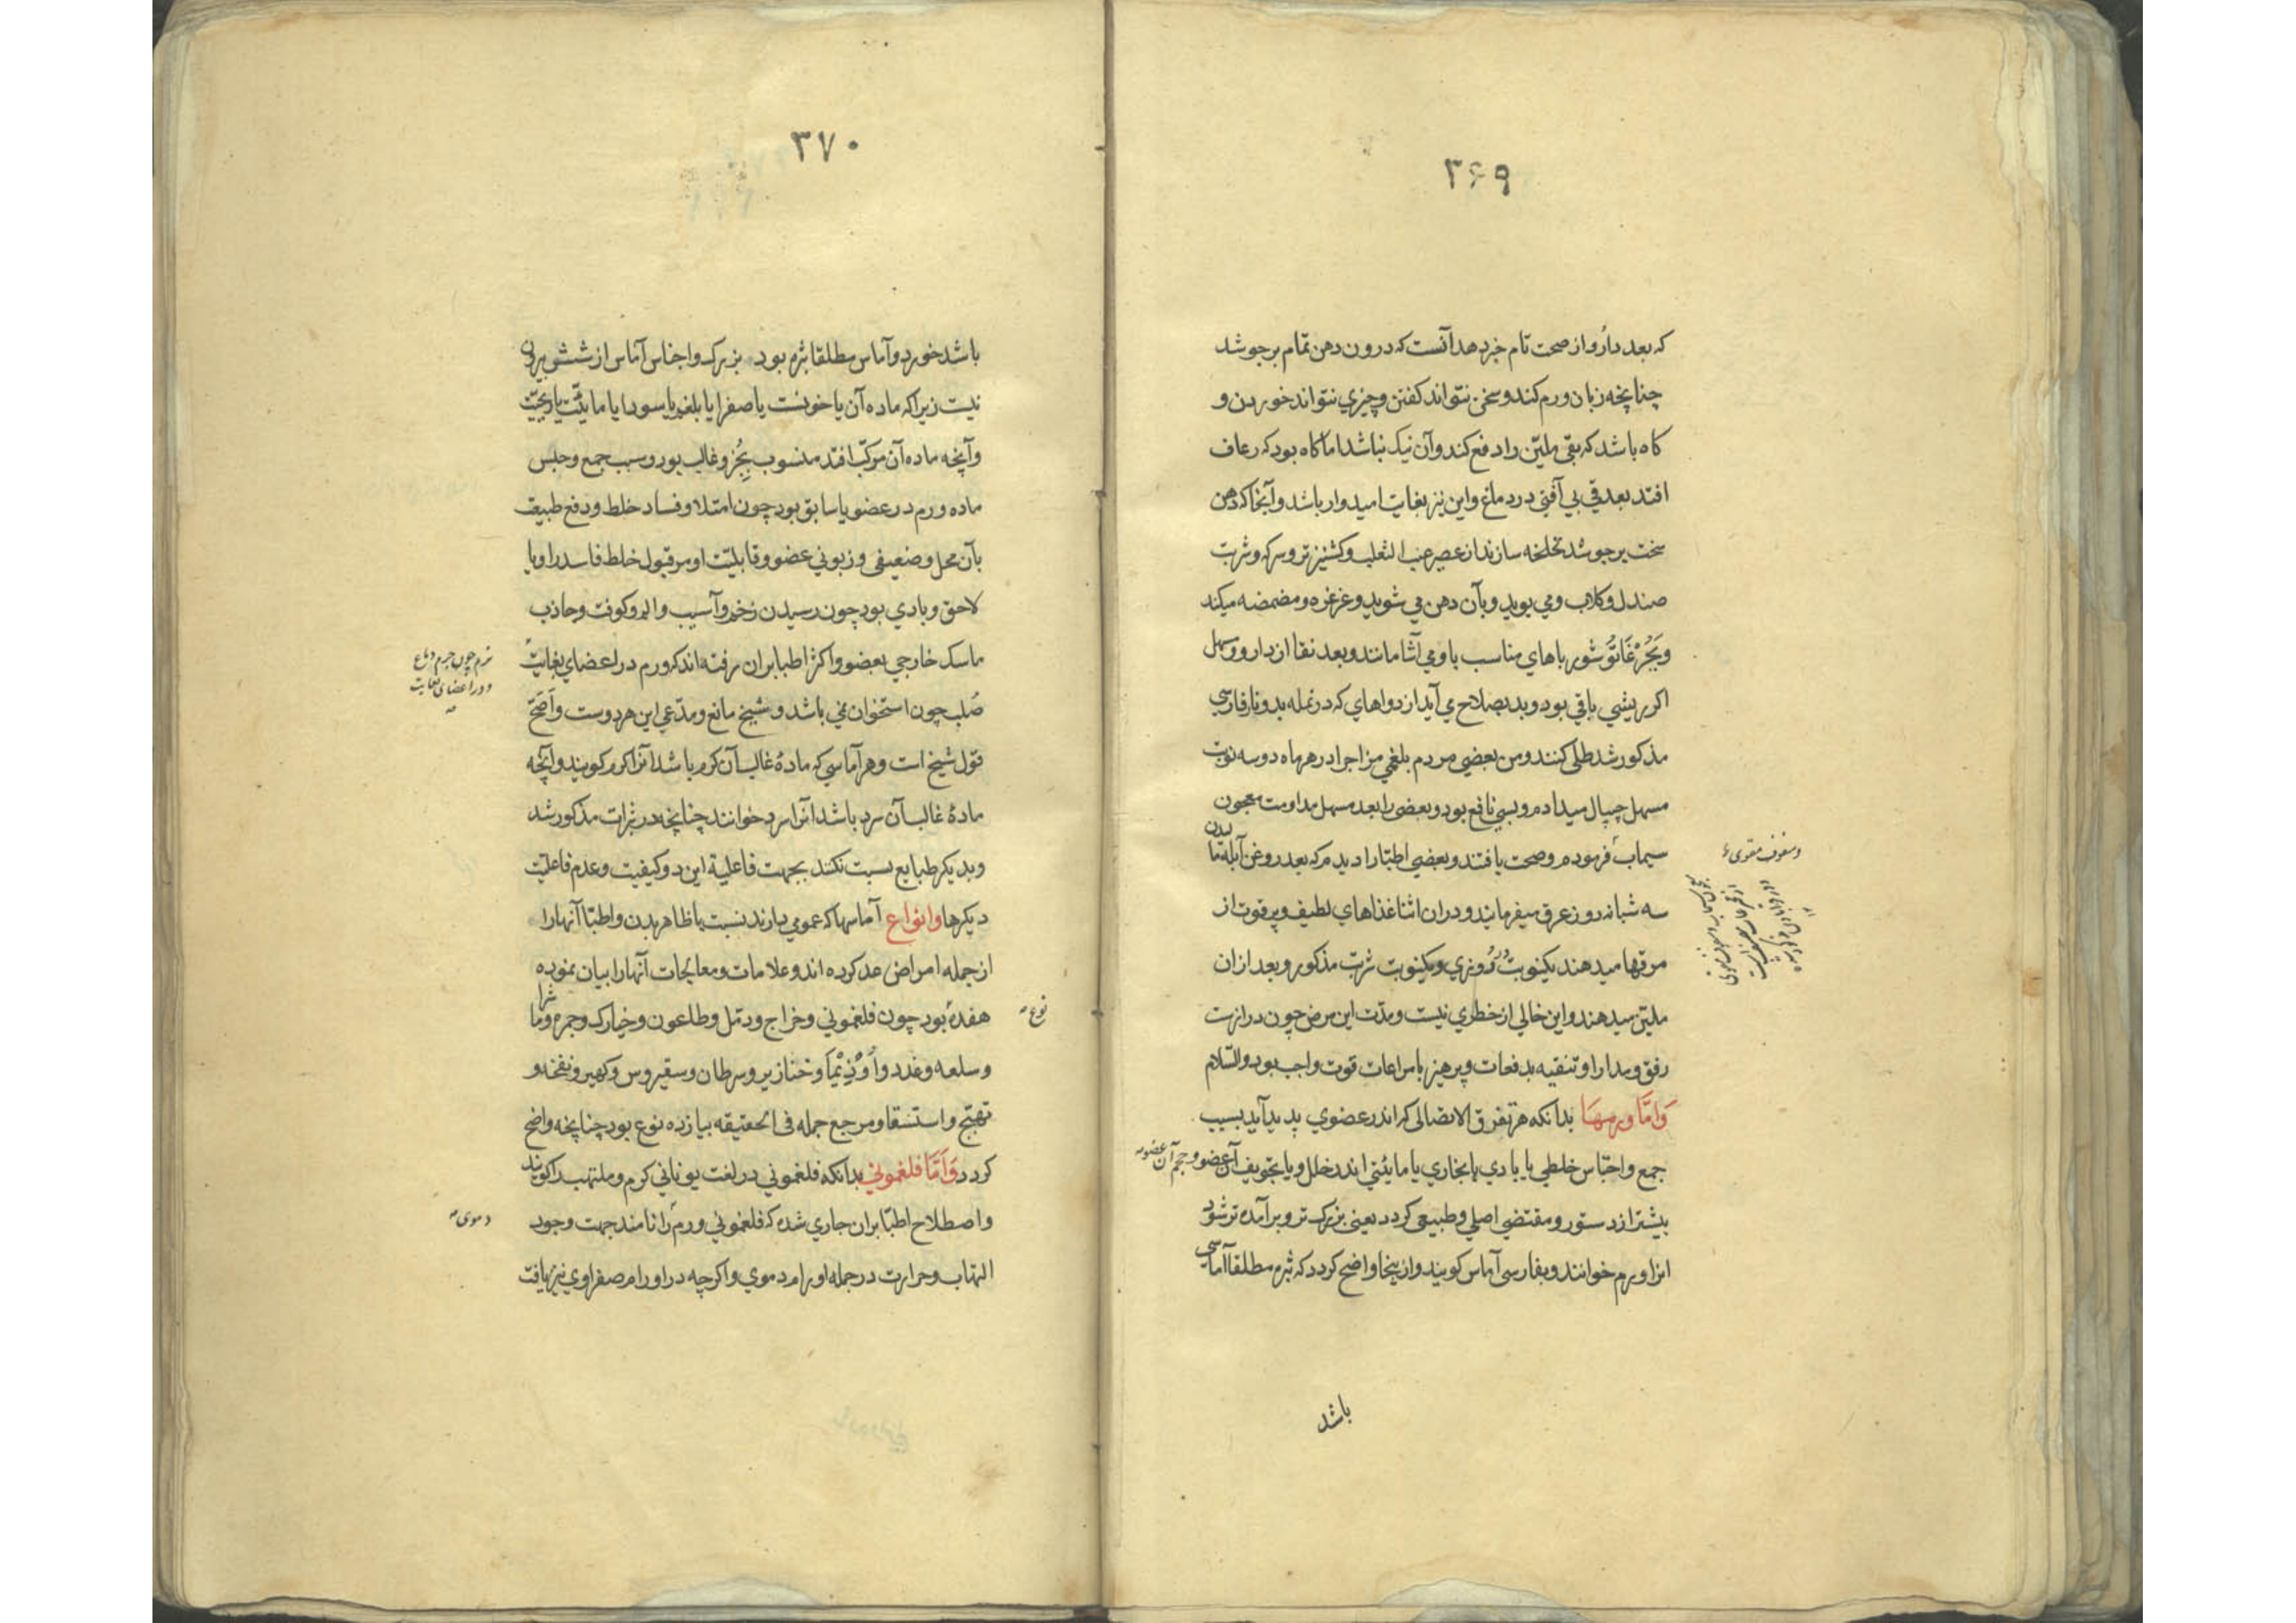 ۳۶۹
که بعد دارو از صحت تام خبر دهد آنست که درون دهن تمام برجوشد
چنانچه زبان ورم کند و سخن نتواند کفتن و چیزي نتواند خوردن و
کاه باشد که بقی ملیّن را دفع کند و آن نیک نباشد اما کاه بود که رعاف
افتد بعد قي بي آفتي در دماغ و این نیز بغایت امیدوار باشد و آنجا که دهن
سخت برجوشد تخلخه سازند از عصیر عنب الثعلب و کشنیز تر و سرکه و شربت
صندل و کلاب و مي بوید و بآن دهن مي شوید و غرغره و مضمضه میکند
شورباهاي مناسب با ومي آشامانند و بعد نقا از دارو و مسهل
اکر ریشي باقي بود و بد بصلاح مي آید از دواهاي که در نمله بد و نار فارسي
مذکور شد طلي کنند و من بعضي مردم بلغمي مزاج را در هر ماه دو سه نوبت
مسهل چیپال میدادم و بسي نافع بود و بعضي را بعد مسهل مداومت معجون
سیماب فرمودم و صحت یافتند و بعضي اطبّا را دیدم که بعد روغن آبله تا
سه شبانه روز عرق میفرمایند و در ان اثنا غذاهاي لطیف و پر قوت از
مرقها میدهند یکنوبت روزي و یکنوبت شربت مذکور و بعد از ان
ملیّن میدهند و این خالي از خطري نیست و مدّت این مرض چون درازست
رفق و مدارا و تنقیه بدفعات و پرهیز با مراعات قوت واجب بود والسّلام
وَامّا ورمها بدانکه هر تفرق الاتصالی که اندر عضوي پدید آید بسبب
جمع و احتباس خلطي یا بادي یا بخاري یا مایئتي اندر خلل و یا تجویف آن عضو و حجم آن عضو
بیشتر از دستور و مقتضي اصلي و طبیعي کردد یعنی بزرک تر و برآمده تر شود
انرا ورم خوانند و بفارسی آماس کویند و از ینجا واضح کردد که بثره مطلقا آماسي
و سفوف مقوی
باشد
۳۷۰
باشد خورد و آماس مطلقا بثره بود بزرک و اجناس آماس از شش بیرون
نیست زیرا که ماده آن یا خونست یا صفرا یا بلغم یا سودا یا مایئت یا ریحیت
و آنچه ماده آن مرکّب افتد منسوب بجُزو غالب بود و سبب جمع و حبس
ماده ورم در عضو یا سابق بود چون امتلا و فساد خلط و دفع طبیعت
بآن محل و ضعیفی و زبوني عضو و قابلیّت او مر قبول خلط فاسد را و یا
لاحق و بادي بود چون رسیدن زخم و آسیب و الم و کوفت و جاذب
ماسک خارجي بعضو و اکثر اطبا بران رفته اند که ورم در اعضاي بغایت
صُلب چون استخوان نمي باشد و شیخ مانع و مدّعي این هر دوست و اَصَحّ
قول شیخ است و هر آماسي که مادهٔ غالب آن کرم باشد آنرا کرم کویند و آنچه
مادهٔ غالب آن سرد باشد انرا سرد خوانند چنانچه در بثرات مذکور شد
و بدیکر طبایع نسبت نکنند بجهت فاعلیة این دو کیفیت و عدم فاعلیّت
دیکرها وانواع آماسها که عمومي دارند نسبت با ظاهر بدن و اطبّا آنها را
از جمله امراض عد کرده اند و علامات و معالجات آنها را بیان نموده
هفده بود چون فلغموني و خراج و دمّل و طاعون و خیارک و جمره و ماشرا
و سلعه و غدد و اُوذِیْمَا و خنازیر و سرطان و سقیروس و کهیر و نفخه و
تهبّج و استسقا و مرجع جمله فی الحقیقه بیازده نوع بود چنانچه واضح
کردد وَاَمّا فلغموني بدانکه فلغموني در لغت یوناني کرم و ملتهب را کویند
و اصطلاح اطبّا بران جاري شده که فلغموني ورم را نامند جهت وجود
التهاب و حرارت در جمله اورام دموي و اکرچه در اورام صفراوي نیز یافت
نرم چون جرم دماغ
و در اعضای بغایت
نوع
دموی